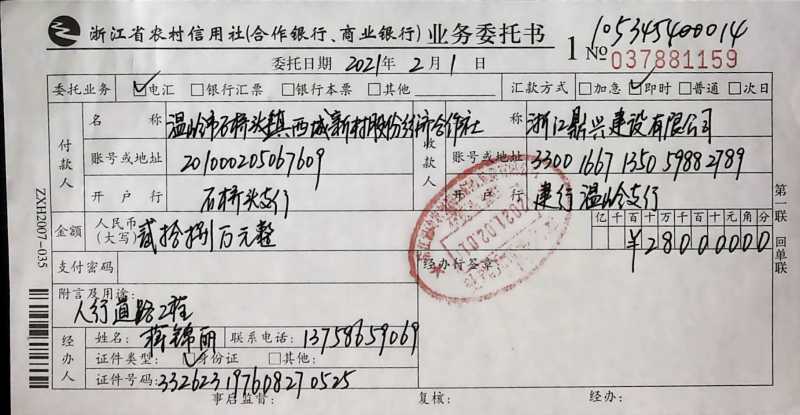 浙江省农村信用社(合作银行、商业银行)业务委托书
1 № 037881159
10534540014
委托日期 2021年 2 月 1 日
委托业务 ☑电汇 □银行汇票 □银行本票 □其他 汇款方式 □加急 ☑即时 □普通 □次日
付款人
名称 温岭市石桥头镇西城新村股份经济合作社
账号或地址 201000205067609
开户行 石桥头支行
收款人
名称 浙江鼎兴建设有限公司
账号或地址 33001667135059882789
开户行 建行温岭支行
金额 人民币(大写) 贰拾捌万元整
亿千百十万千百十元角分
¥28000000
支付密码
经办行签章:
2021.02.01
附言及用途:
人行道路工程
经办人
姓名: 蒋锦丽 联系电话: 13758659069
证件类型: ☑身份证 □其他:
证件号码: 332623197608270525
事后监督: 复核: 经办:
第一联 回单联
ZXH2007-035